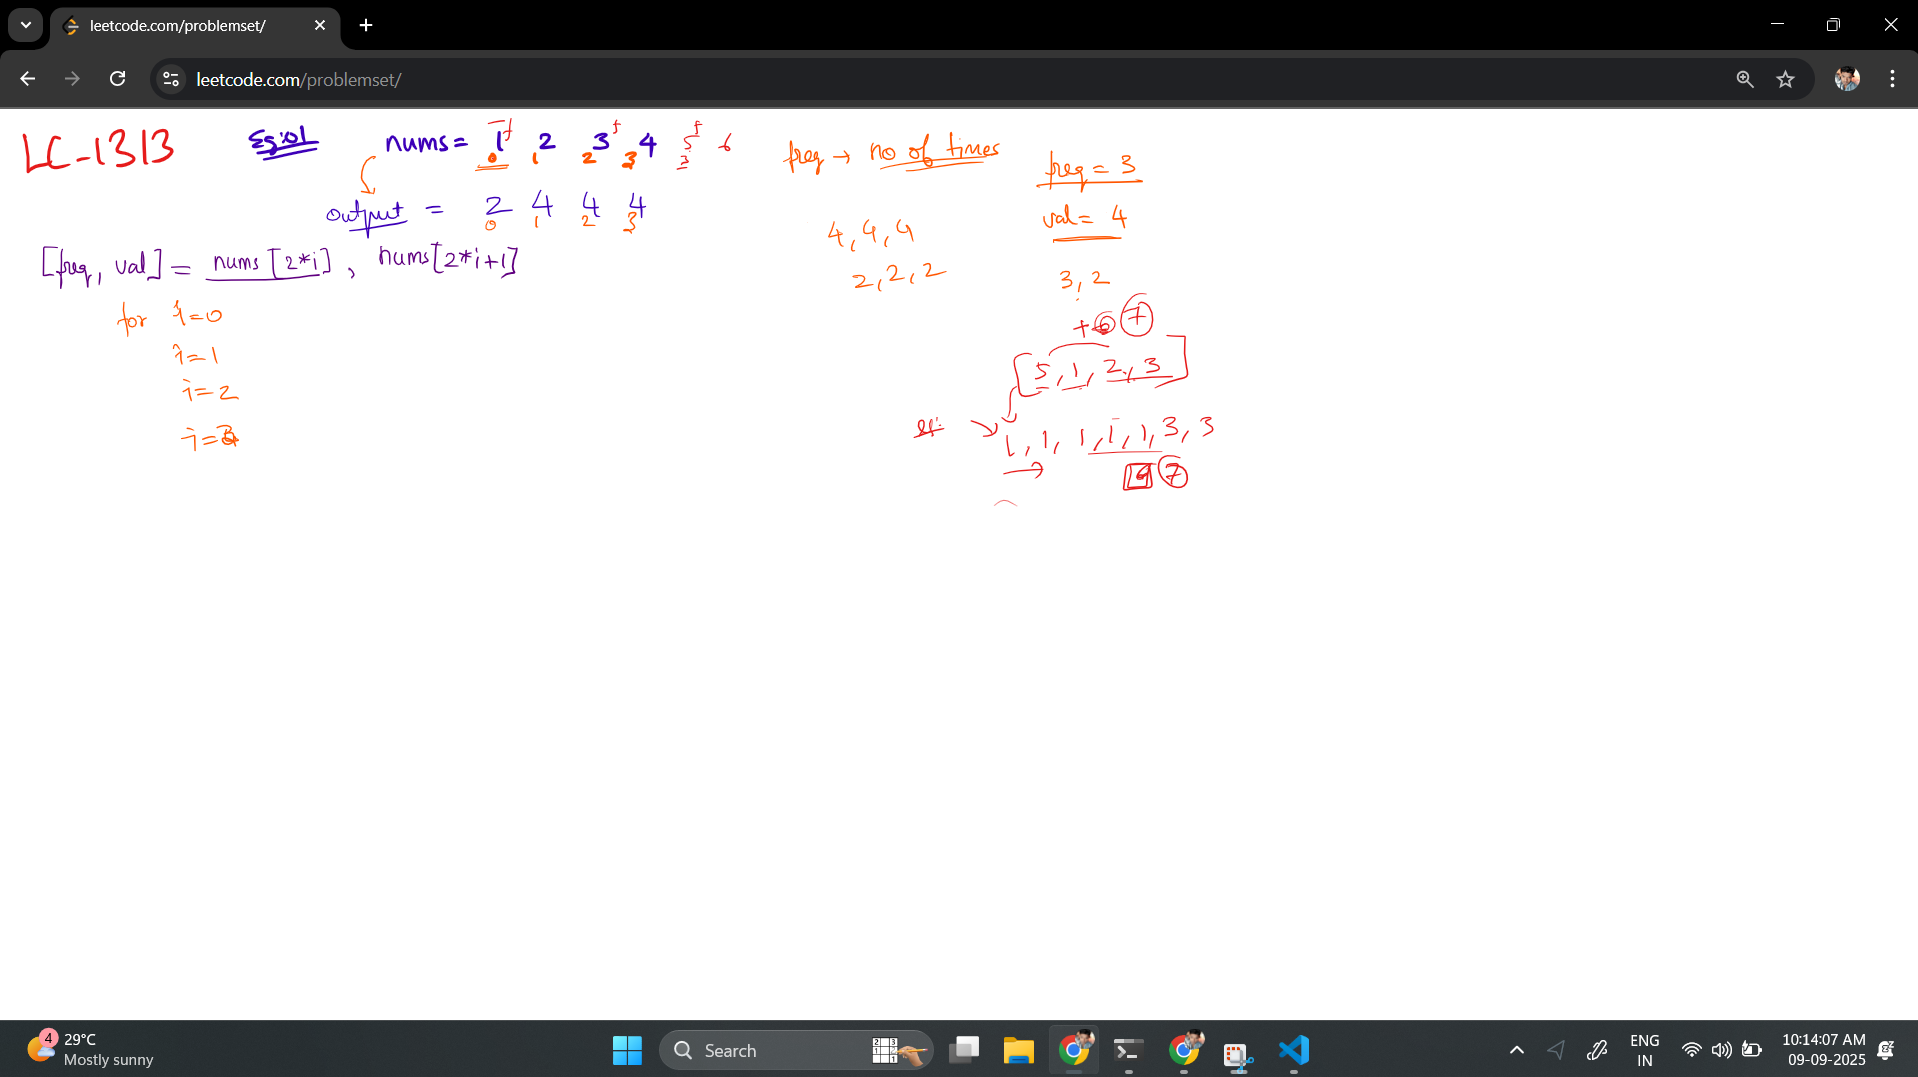 leetcode.com/problemset/
leetcode.com/problemset/
LC-1313
Eg:01
nums = 1 2 3 4 5 6
f f f
0 1 2 3 3
output = 2 4 4 4
0 1 2 3
[freq, val] = nums[2*i], nums[2*i+1]
for i=0
i=1
i=2
freq → no of times
4, 4, 4
2, 2, 2
freq = 3
val = 4
3, 2
7
[5, 1, 2, 3]
1, 1, 1, 1, 1, 3, 3
7
4
29°C
Mostly sunny
Search
ENG
IN
10:14:07 AM
09-09-2025